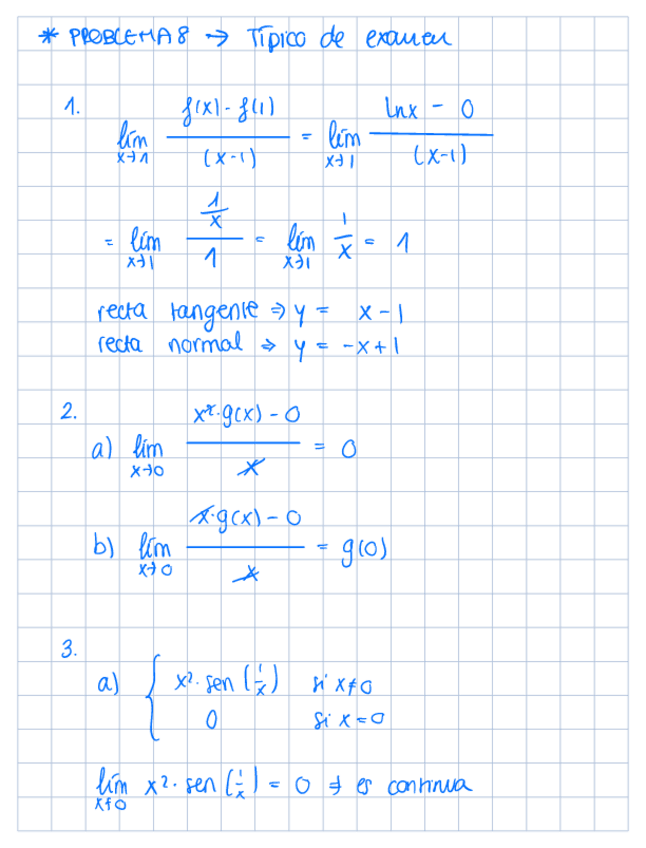 * PROBLEMA 8 → Típico de examen
1. lím x→1 (f(x) - f(1))/(x-1) = lím x→1 (lnx - 0)/(x-1)
= lím x→1 (1/x)/1 = lím x→1 1/x = 1
recta tangente ⇒ y = x-1
recta normal ⇒ y = -x+1
2.
a) lím x→0 (x²·g(x) - 0)/x = 0
b) lím x→0 (x·g(x) - 0)/x = g(0)
3.
a) { x²·sen(1/x) si x≠0
0 si x=0
lím x→0 x²·sen(1/x) = 0 ⇒ es continua